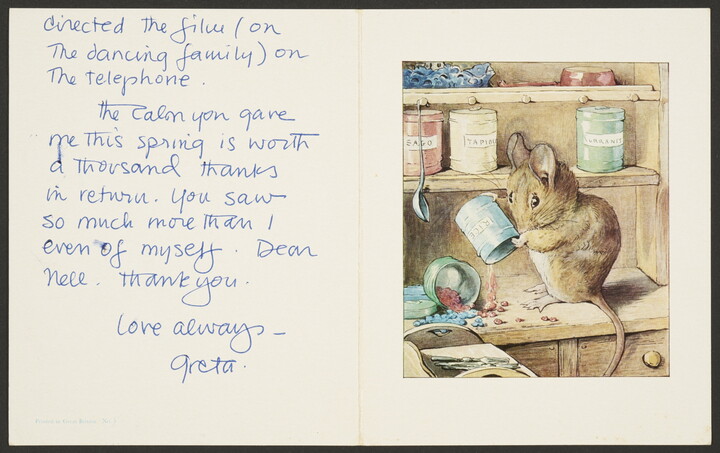 directed the film (on
The dancing family) on
The telephone.
the Calon you gave
me this spring is worth
a thousand thanks
in return. You saw
so much more than I
even of myself. Dear
Nell. Thank you.
love always -
Greta.
SAGO
TAPIO